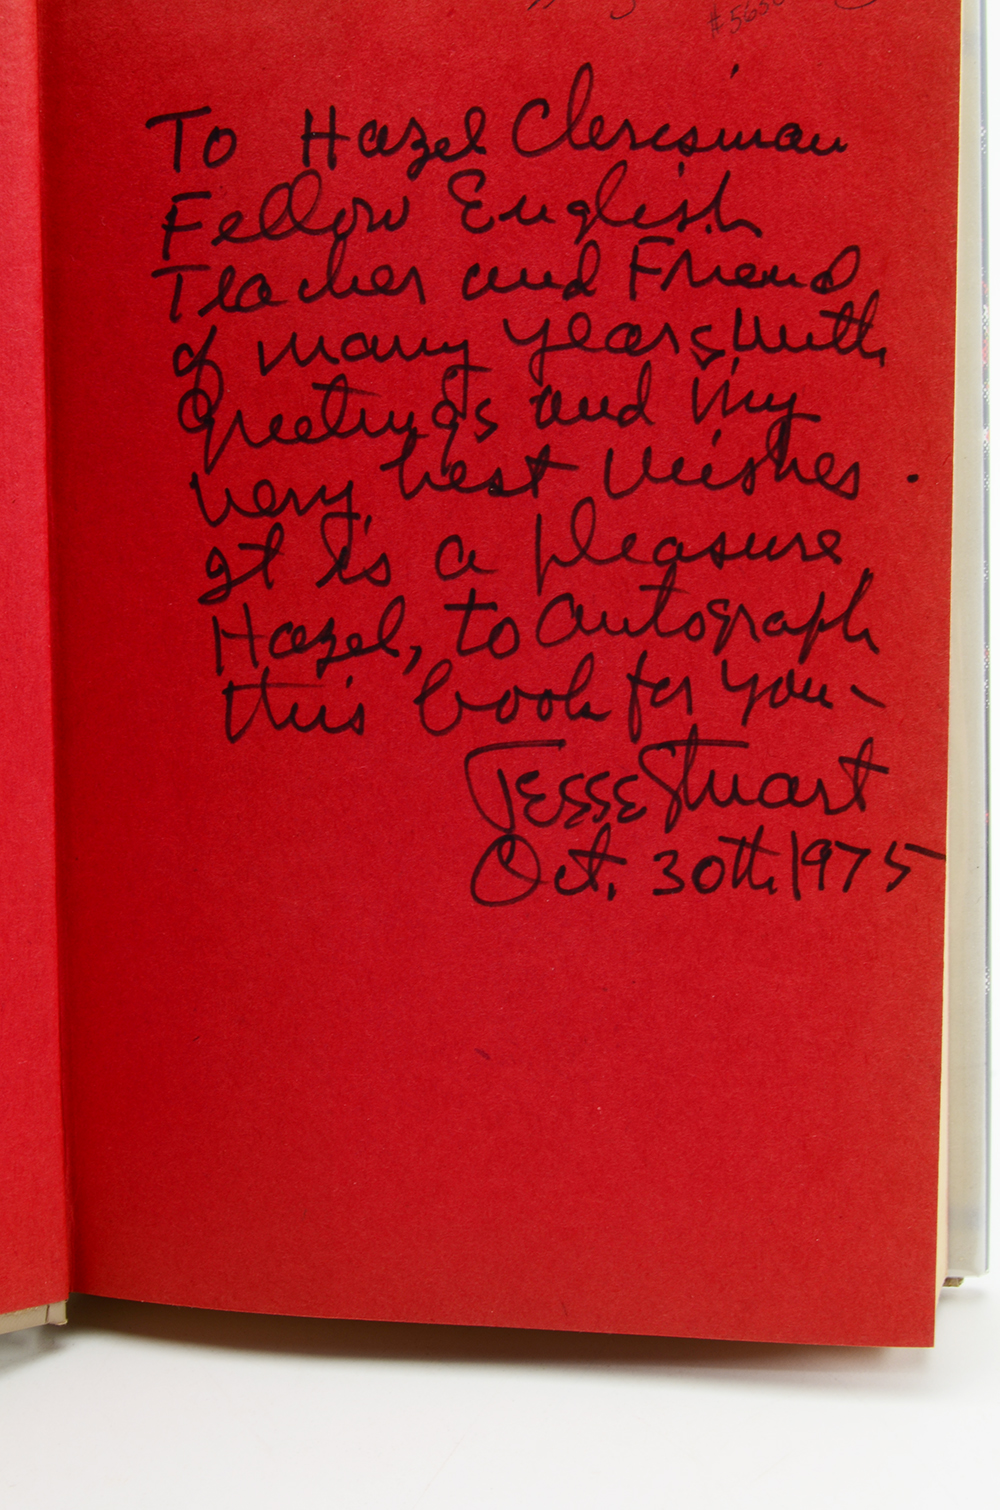 To Hazel
Fellow English
Teacher and Friend
of many years, with
greetings and my
very, best wishes.
It is a pleasure,
Hazel, to autograph
this book for you—
Jesse Stuart
Oct. 30th, 1975